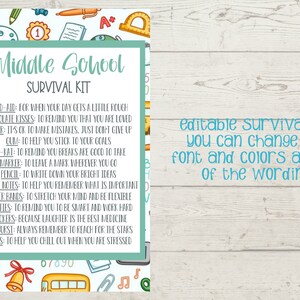 Middle School
SURVIVAL KIT
FOR WHEN YOUR DAY GETS A LITTLE ROUGH
KISSES: TO REMIND YOU THAT YOU ARE LOVED
IT'S OK TO MAKE MISTAKES, JUST DON'T GIVE UP
GUM: TO HELP YOU STICK TO YOUR GOALS
TO REMIND YOU BREAKS ARE GOOD TO TAKE
MARKER: TO LEAVE A MARK WHEREVER YOU GO
PENCIL: TO WRITE DOWN YOUR BRIGHT IDEAS
NOTES: TO HELP YOU REMEMBER WHAT IS IMPORTANT
BANDS: TO STRETCH YOUR MIND AND BE FLEXIBLE
TO REMIND YOU TO BE SMART AND WORK HARD
BECAUSE LAUGHTER IS THE BEST MEDICINE
ALWAYS REMEMBER TO REACH FOR THE STARS
TO HELP YOU CHILL OUT WHEN YOU ARE STRESSED
editable Surviva
you can change
font and colors a
of the wordin